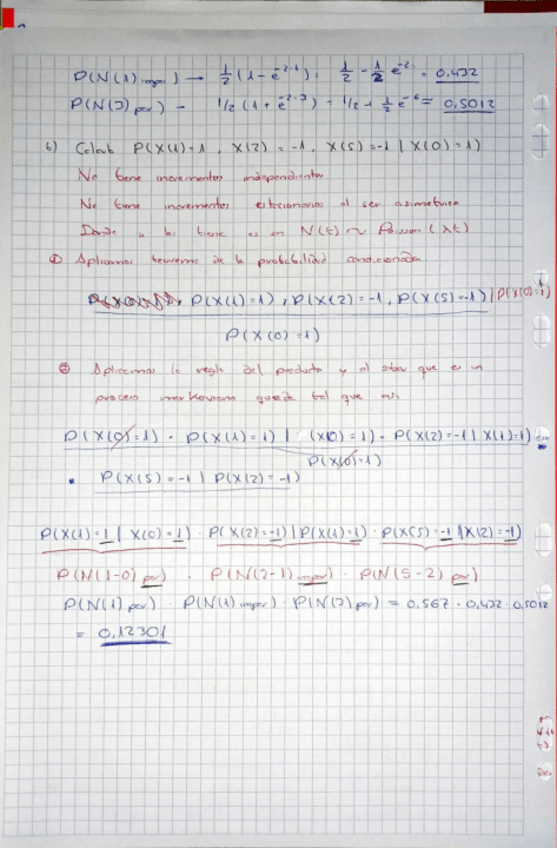 P(N(1) impar) → 1/2 (1 - e^-2·1) = 1/2 - 1/2 e^-2 = 0,432
P(N(3) par) - 1/2 (1 + e^-2·3) = 1/2 + 1/2 e^-6 = 0,5012
6) P(X(1)=1, X(2)=-1, X(5)=-1 | X(0)=1)
No tiene incrementos independientes
No tiene incrementos estacionarios al ser
es en N(t) ~ Poisson (λt)
① Aplicamos teorema de la probabilidad condicionada
P(X(1)=1), P(X(2)=-1, P(X(5)=-1) | P(X(0)=1)
P(X(0)=1)
② Aplicamos la regla del producto y al saber que es un
proceso markoviano queda tal que así
P(X(0)=1) · P(X(1)=1) | (X(0)=1) · P(X(2)=-1 | X(1)=1)
P(X(0)=1)
· P(X(5)=-1 | P(X(2)=-1)
P(X(1)=1 | X(0)=1) · P(X(2)=-1) | P(X(1)=1) · P(X(5)=-1 | X(2)=-1)
P(N(1-0) par) · P(N(2-1) impar) · P(N(5-2) par)
P(N(1) par) · P(N(1) impar) · P(N(3) par) = 0,567 · 0,432 · 0,5012
= 0,12301